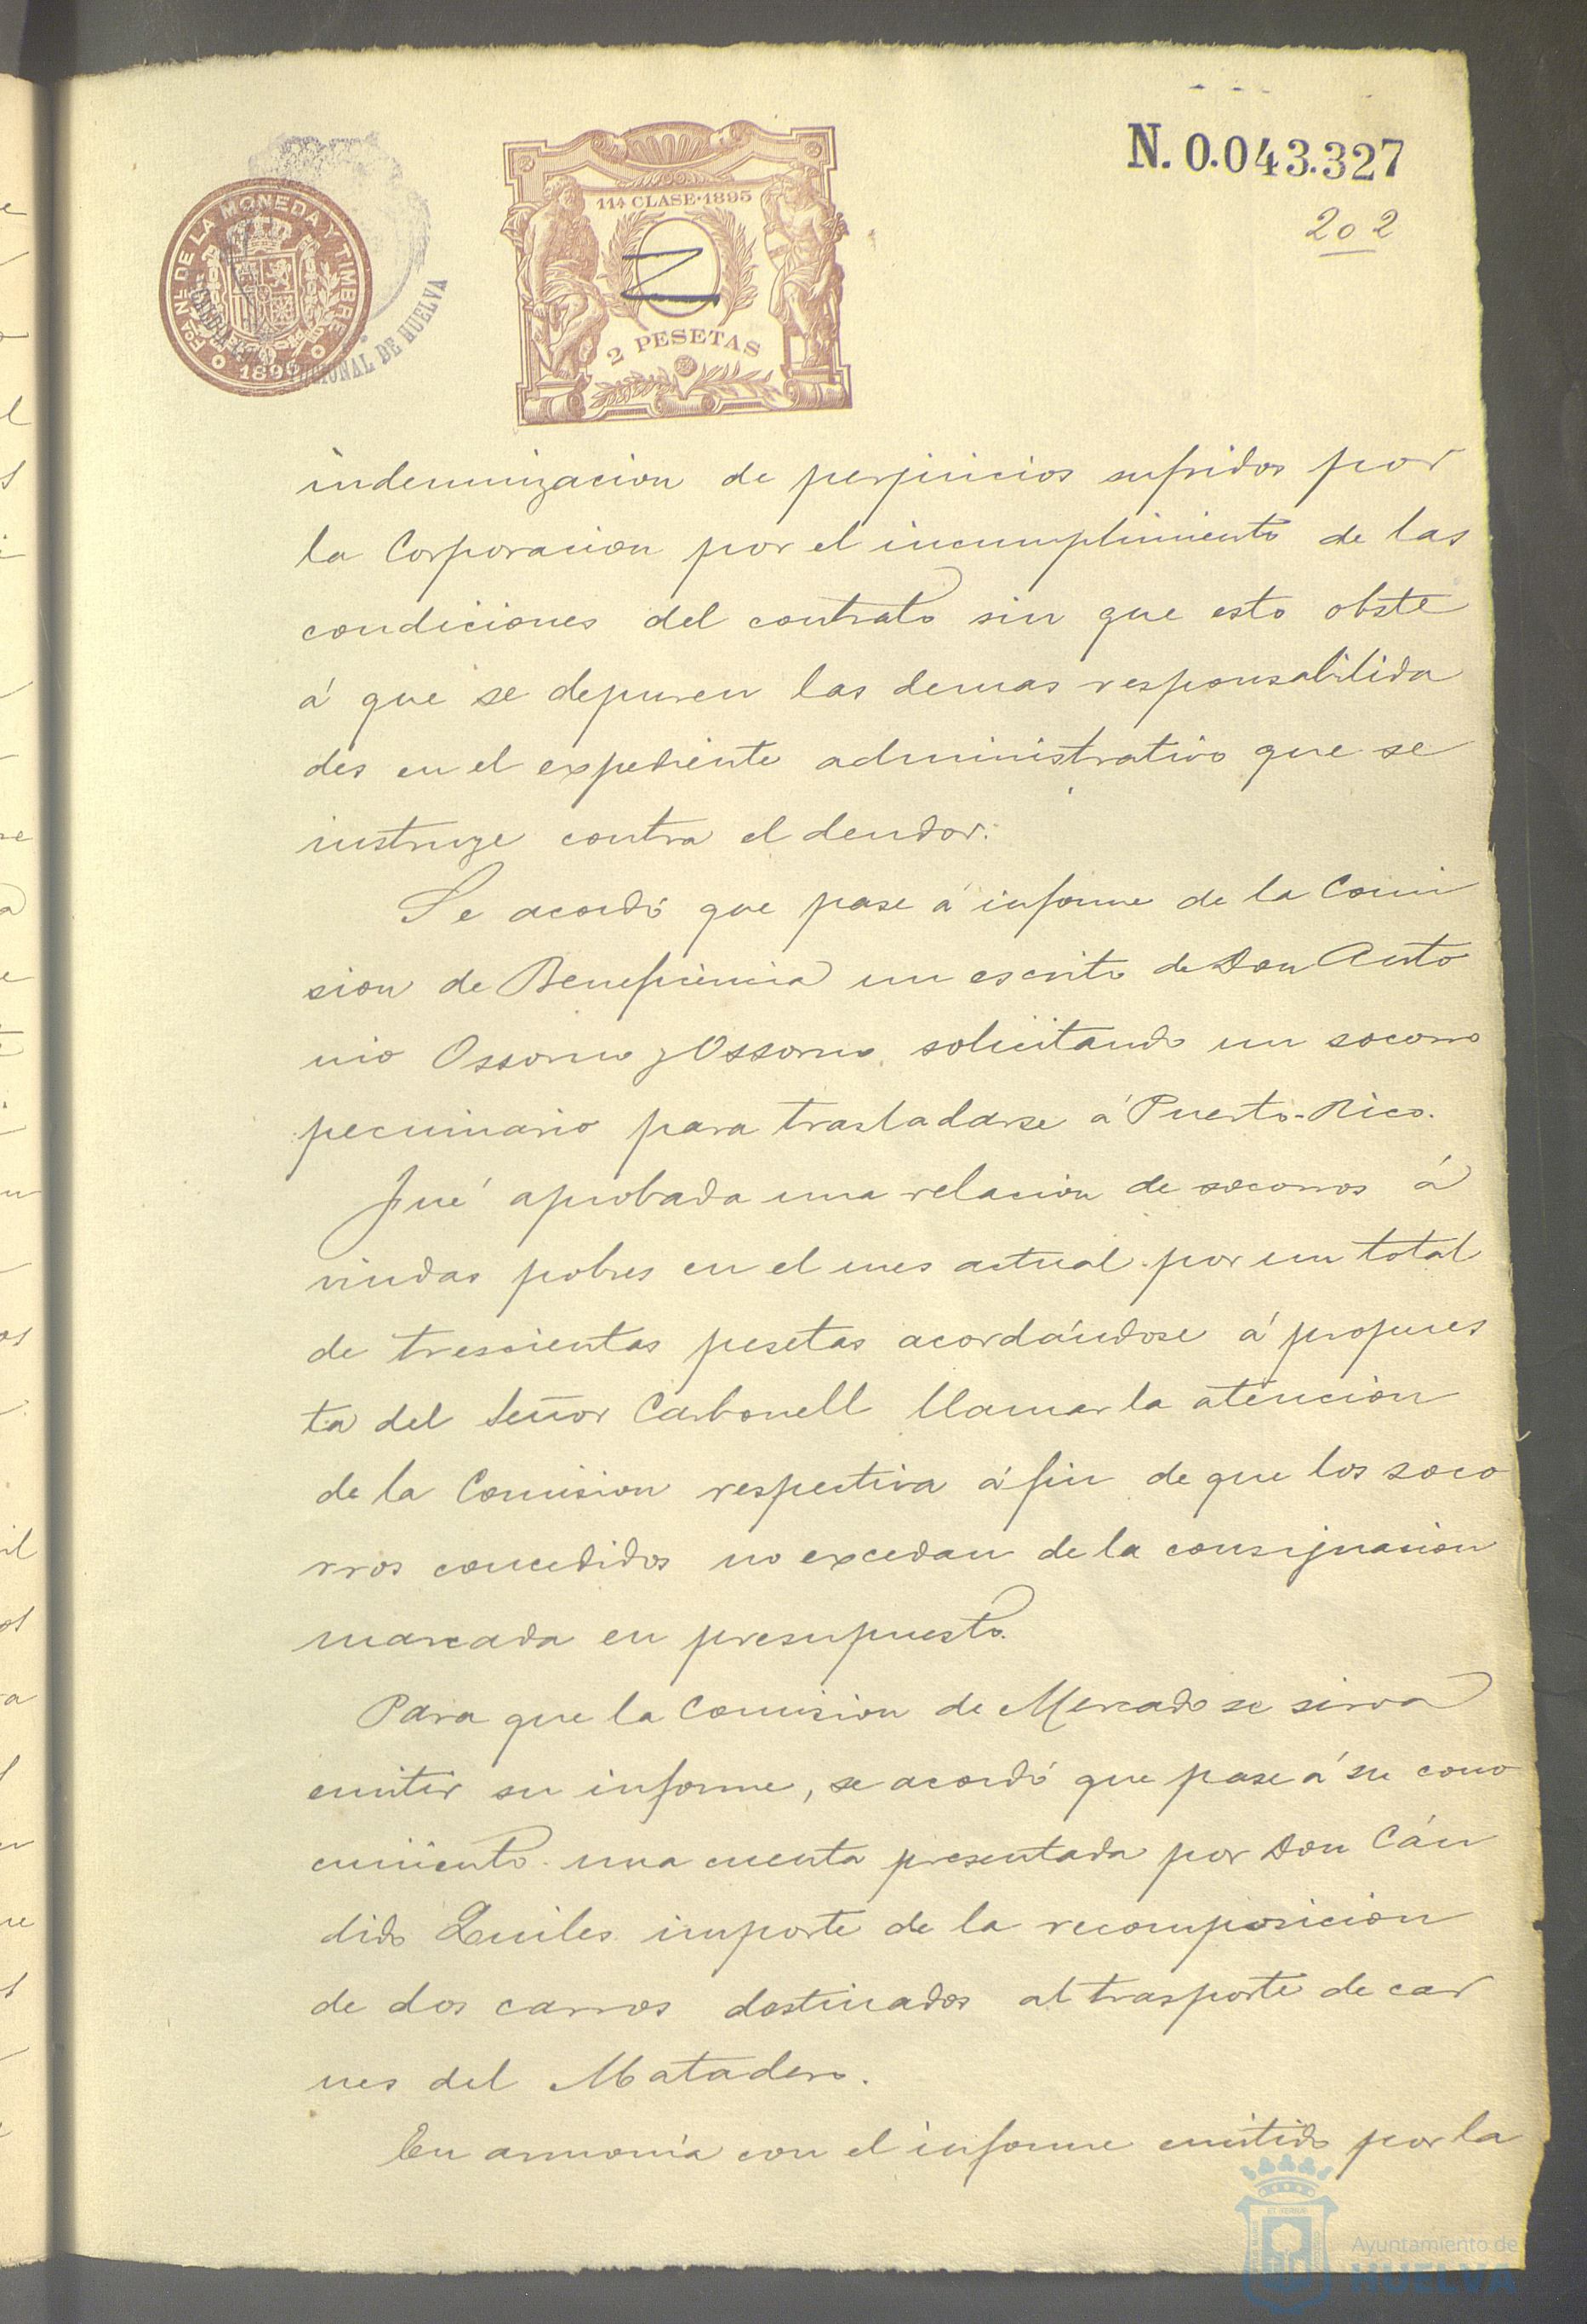 N. 0.043.327
202
11ª CLASE·1895
2 PESETAS
Fca. NL. DE LA MONEDA Y TIMBRE
CIONAL DE HUELVA
indemnizacion de perjuicios sufridos por
la Corporacion por el incumplimiento de las
condiciones del contrato sin que esto obste
á que se depuren las demas responsabilida
des en el expediente administrativo que se
instruye contra el deudor.
Se acordó que pase á informe de la Comi
sion de Beneficencia un escrito de Don Anto
nio Ossorno y Ossorno solicitando un socorro
pecuniario para trasladarse á Puerto-Rico.
Fué aprobada una relacion de socorros á
viudas pobres en el mes actual por un total
de trescientas pesetas acordándose á propues
ta del Señor Carbonell llamar la atencion
de la Comision respectiva á fin de que los soco
rros concedidos no excedan de la consignacion
marcada en presupuesto.
Para que la Comision de Mercado se sirva
emitir su informe, se acordó que pase á su cono
cimiento una cuenta presentada por Don Cán
dido Quiles importe de la recomposicion
de dos carros destinados al trasporte de car
nes del Matadero.
En armonía con el informe emitido por la
Ayuntamiento de
HUELVA